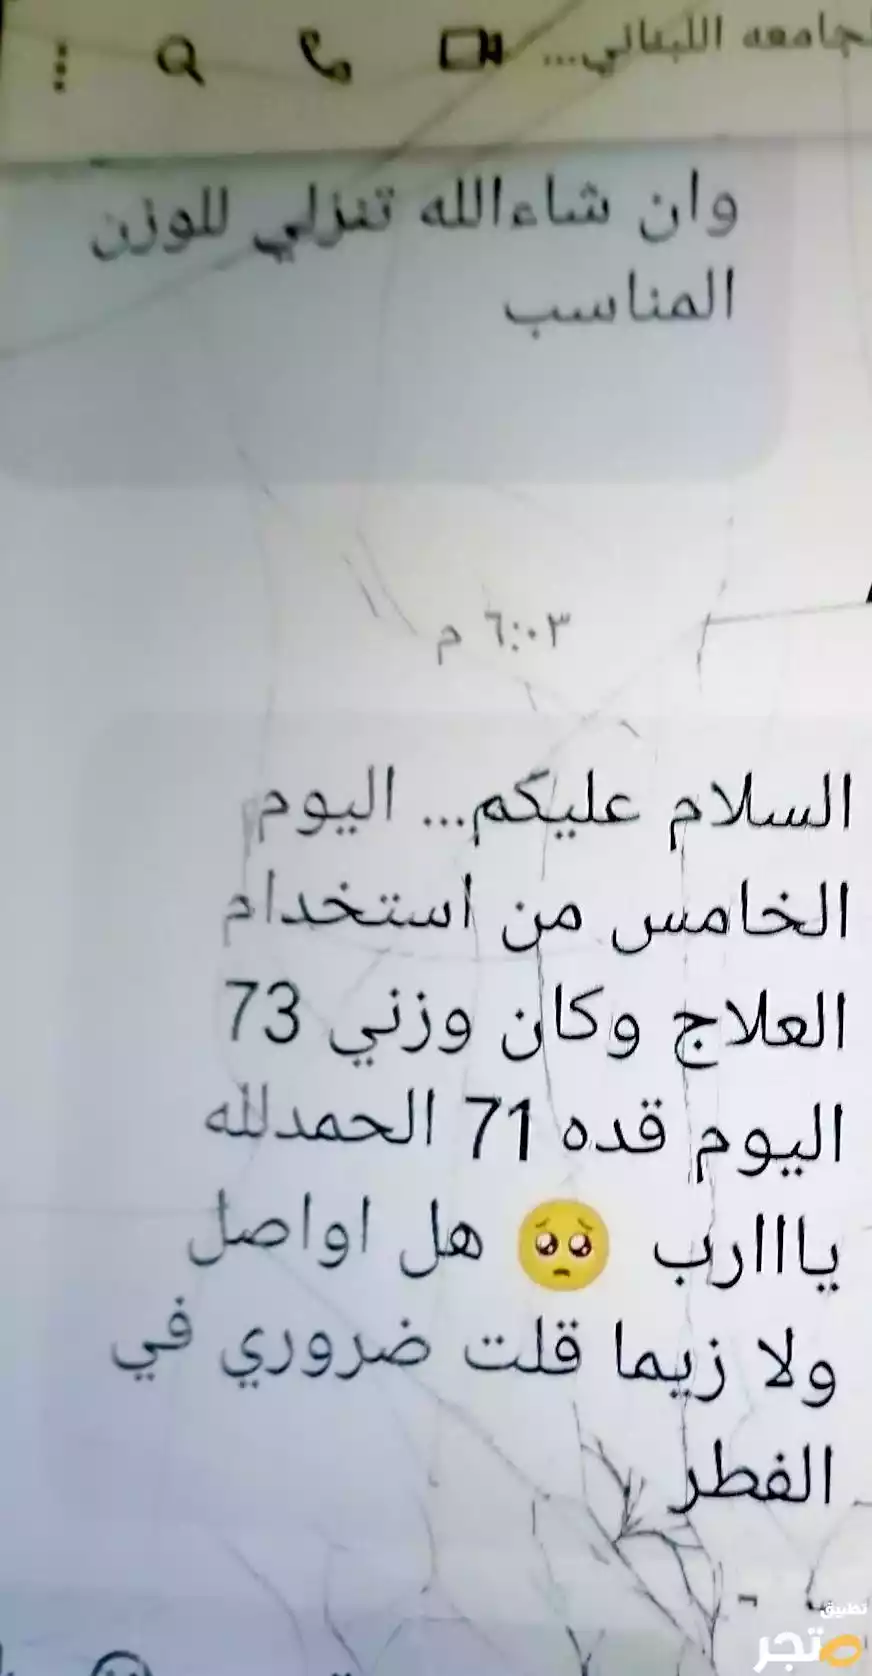 لجامعه اللبناني...
وان شاءالله تنزلي للوزن
المناسب
٦:٠٣ م
السلام عليكم... اليوم
الخامس من استخدام
العلاج وكان وزني 73
اليوم قده 71 الحمدلله
يااارب 🥺 هل اواصل
ولا زيما قلت ضروري في
الفطر
تطبيق
متجر